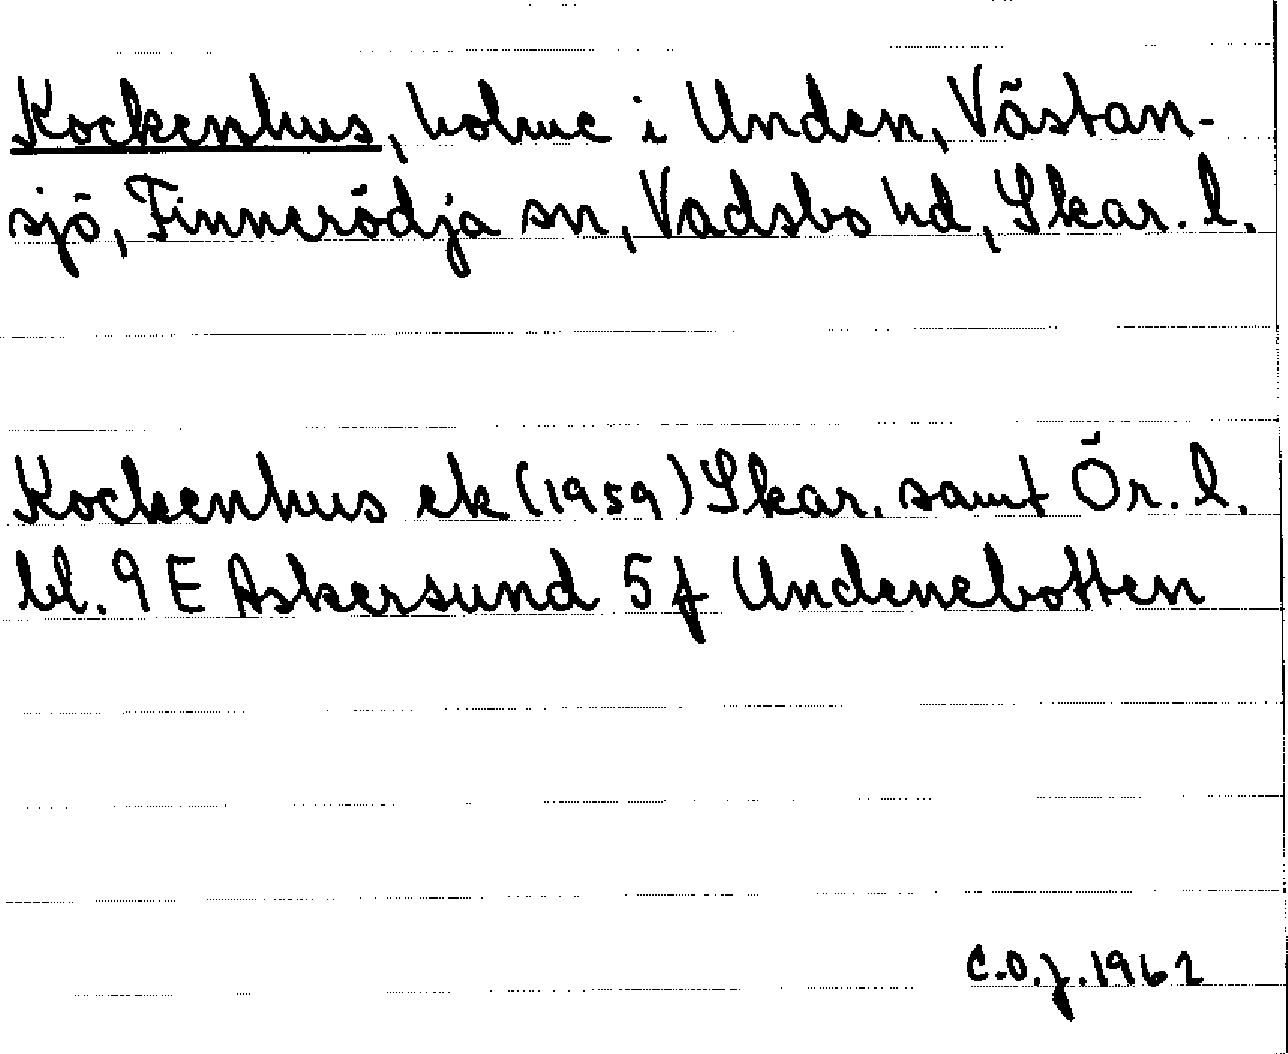 Kockenhus, holme i Unden, Västan-
sjö, Finnerödja sn, Vadsbo hd, Skar. l.
Kockenhus ek (1959) Skar. samt Ör. l.
bl. 9 E Askersund 5 f Undenebotten
C.O.J. 1962